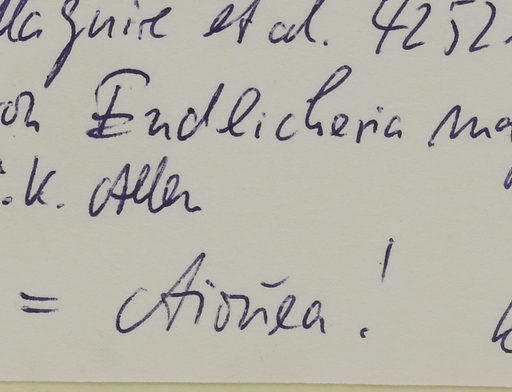 Maguire et al. 4252
on Endlicheria
C.K. Allen
= Aiouea!